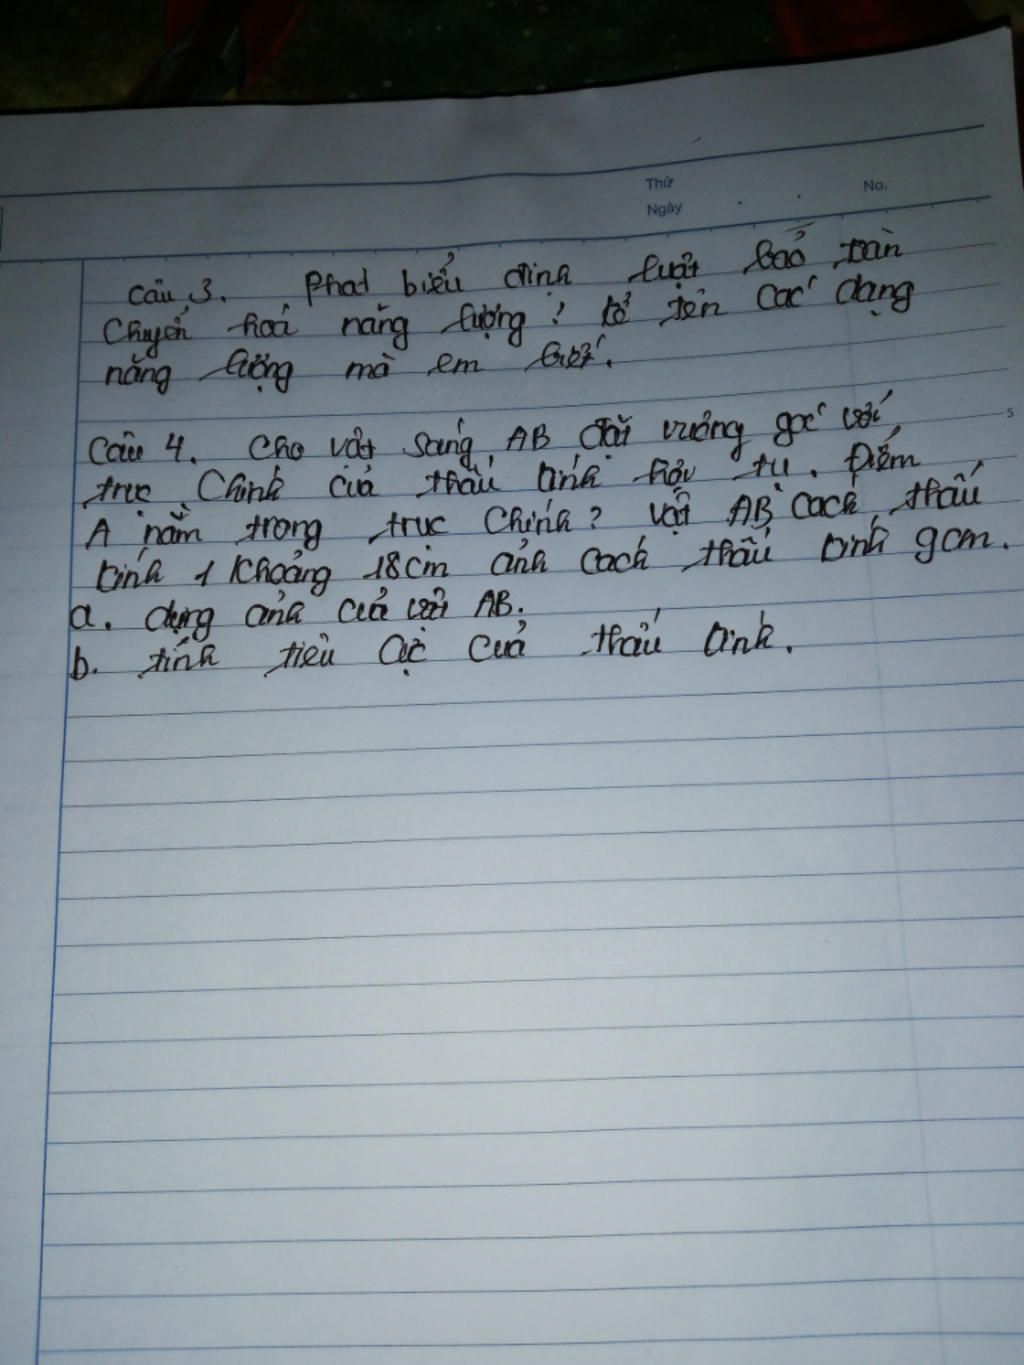 Thứ
No.
Ngày
Câu 3. Phát biểu định luật bảo toàn
Chuyển hoá năng lượng? kể tên các dạng
năng lượng mà em biết.
Câu 4. Cho vật sáng AB đặt vuông góc với
trục Chính của thấu kính hội tụ. Điểm
A nằm trong trục Chính? vật AB cách thấu
kính 1 khoảng 18cm ảnh cách thấu kính 9cm.
a. dựng ảnh của vật AB.
b. tính tiêu cự của thấu kính.
5